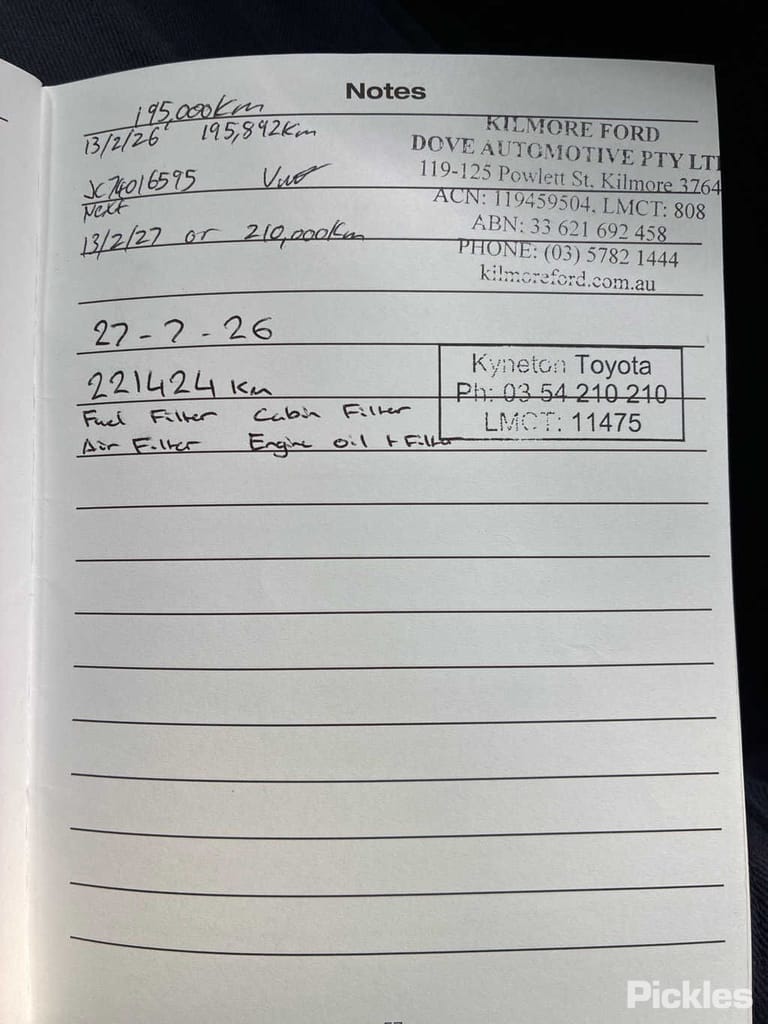 Notes
195,000Km
13/2/26 195,892Km
KILMORE FORD
DOVE AUTOMOTIVE PTY LT
119-125 Powlett St. Kilmore 3764
ACN: 119459504, LMCT: 808
ABN: 33 621 692 458
PHONE: (03) 5782 1444
kilmoreford.com.au
JC74016595
Next
13/2/27 or 210,000Km
27-7-26
221424 Km
Kyneton Toyota
Ph: 03 54 210 210
LMCT: 11475
Fuel Filter Cabin Filter
Air Filter Engine oil + Filter
Pickles